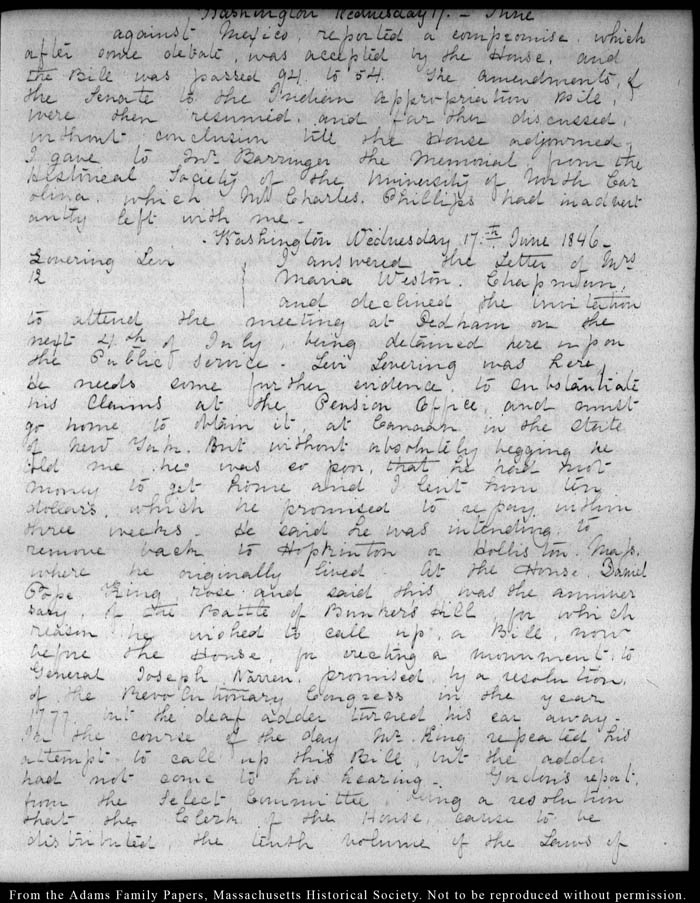 Washington Wednesday 17. - June
against Mexico, reported a compromise, which
after some debate, was accepted by the House, and
the Bill was passed 94. to 54. The amendments, of
the Senate to the Indian appropriation Bill,
were then resumed, and further discussed,
without conclusion till the House adjourned,
I gave to Mr. Barringer the Memorial, from the
Historical Society of the University of North Car
olina, which Mr Charles. Phillips had inadvert
antly left with me -
. Washington Wednesday 17.th June 1846 -
Lovering Levi I answered the Letter of Mrs
12 Maria Weston. Chapman,
and declined the invitation
to attend the meeting at Dedham on the
next 4th of July, being detained here upon
the Public service - Levi Lovering was here,
He needs some further evidence, to substantiate
his Claims at the Pension Office, and must
go home to obtain it, at Canaan in the State
of New York. But without absolutely begging he
told me, he was so poor, that he had not
money to get home and I lent him ten
dollars, which he promised to repay within
three weeks - He said he was intending to
remove back to Hopkinton or Holliston. Mass.
where he originally lived - At the House, Daniel
Pope King, rose and said this was the anniver
sary, of the Battle of Bunkers Hill, for which
reason he wished to call up, a Bill, now
before the House, for erecting a monument, to
General Joseph Warren, promised, by a resolution,
of the Revolutionary Congress in the year
1777. but the deaf adder turned his ear away -
In the course of the day Mr. King repeated his
attempt to call up this Bill, but the adder
had not come to his hearing - Gordon's report,
from the Select Committee, being a resolution
that the Clerk of the House, cause to be
distributed, the tenth volume of the Laws of
From the Adams Family Papers, Massachusetts Historical Society. Not to be reproduced without permission.